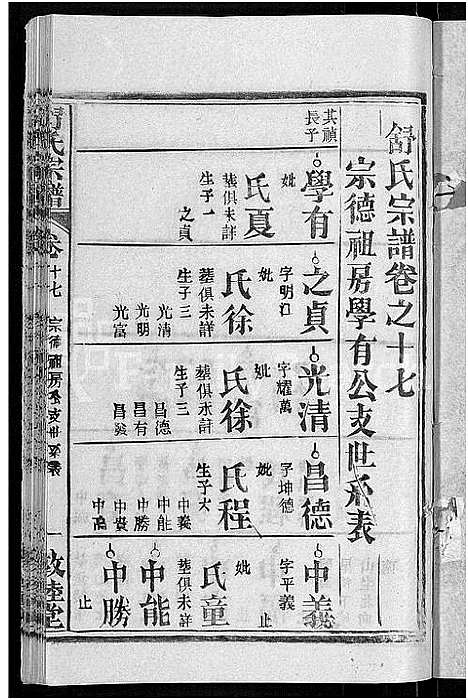 舒氏宗譜卷之十七
宗德祖房學有公支世系表
其禎長子
學有
妣
夏氏
塟俱未詳
生子一
之貞
之貞
字明江
妣
徐氏
塟俱未詳
生子三
光清
光明
光富
光清
字耀萬
妣
徐氏
塟俱未詳
生子三
昌德
昌有
昌發
昌德
字坤德
妣
程氏
生子六
中義
中能
中勝
中貴
中義
字平義
妣
童氏
塟俱未詳
止
中能
中勝
止
舒氏宗譜
卷十七
宗德祖房系支世系表
一
敦睦堂